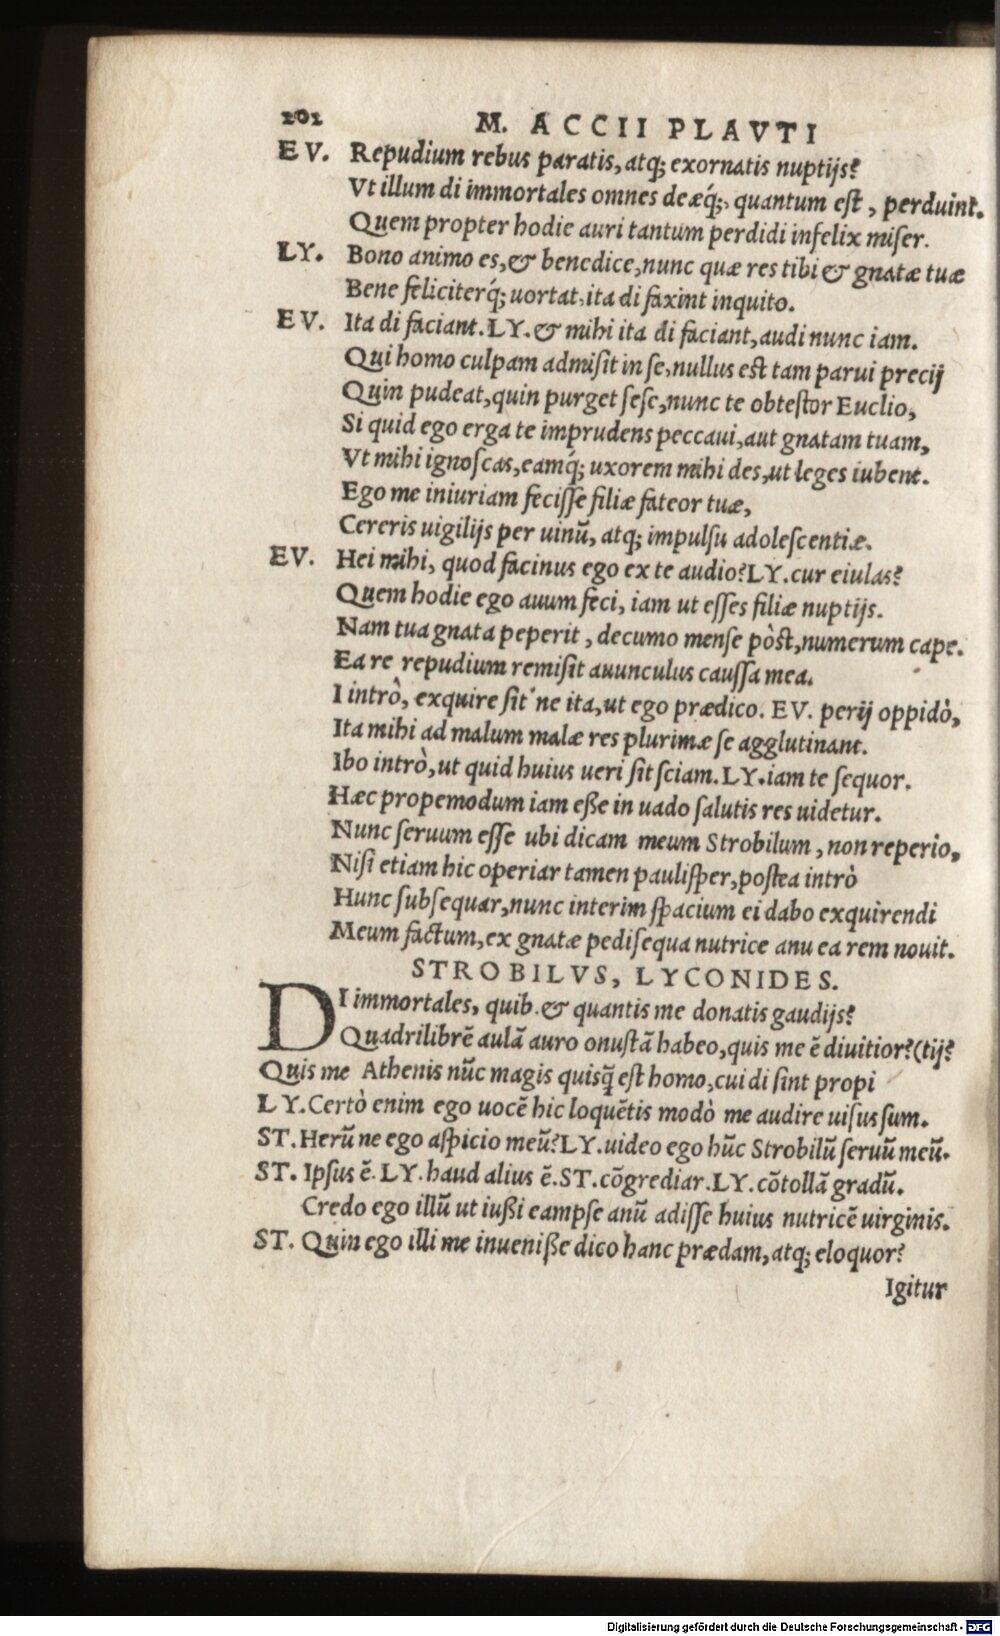 202 M. ACCII PLAVTI
EV. Repudium rebus paratis, atq; exornatis nuptijs?
Vt illum di immortales omnes deæq́;, quantum est, perduint.
Quem propter hodie auri tantum perdidi infelix miser.
LY. Bono animo es, & benedice, nunc quæ res tibi & gnatæ tuæ
Bene feliciterq́; uortat, ita di faxint inquito.
EV. Ita di faciant. LY. & mihi ita di faciant, audi nunc iam.
Qui homo culpam admiſit in ſe, nullus est tam parui precij
Quin pudeat, quin purget ſeſe, nunc te obteſtor Euclio,
Si quid ego erga te imprudens peccaui, aut gnatam tuam,
Vt mihi ignoſcas, eamq́; uxorem mihi des, ut leges iubent.
Ego me iniuriam feciſſe filiæ fateor tuæ,
Cereris uigilijs per uinū, atq; impulſu adoleſcentiæ.
EV. Hei mihi, quod facinus ego ex te audio? LY. cur eiulas?
Quem hodie ego auum feci, iam ut eſſes filiæ nuptijs.
Nam tua gnata peperit, decumo menſe pòst, numerum cape.
Ea re repudium remiſit auunculus cauſſa mea.
I intrò, exquire ſit'ne ita, ut ego prædico. EV. perij oppidò,
Ita mihi ad malum malæ res plurimæ ſe agglutinant.
Ibo intrò, ut quid huius ueri ſit ſciam. LY. iam te ſequor.
Hæc propemodum iam eße in uado ſalutis res uidetur.
Nunc ſeruum eſſe ubi dicam meum Strobilum, non reperio,
Niſi etiam hic operiar tamen pauliſper, poſtea intrò
Hunc ſubſequar, nunc interim ſpacium ei dabo exquirendi
Meum factum, ex gnatæ pediſequa nutrice anu ea rem nouit.
STROBILVS, LYCONIDES.
DI immortales, quib. & quantis me donatis gaudijs?
Quadrilibrē aulā auro onuſtā habeo, quis me ē diuitior? (tij?
Quis me Athenis nūc magis quisq̄ eſt homo, cui di ſint propi
LY. Certò enim ego uocē hic loquētis modò me audire uiſus ſum.
ST. Herū ne ego aſpicio meū? LY. uideo ego hūc Strobilū ſeruū meū.
ST. Ipſus ē. LY. haud alius ē. ST. cōgrediar. LY. cōtollā gradū.
Credo ego illū ut iußi eampſe anū adiſſe huius nutricē uirginis.
ST. Quin ego illi me inueniße dico hanc prædam, atq; eloquor?
Igitur
Digitalisierung gefördert durch die Deutsche Forschungsgemeinschaft - DFG